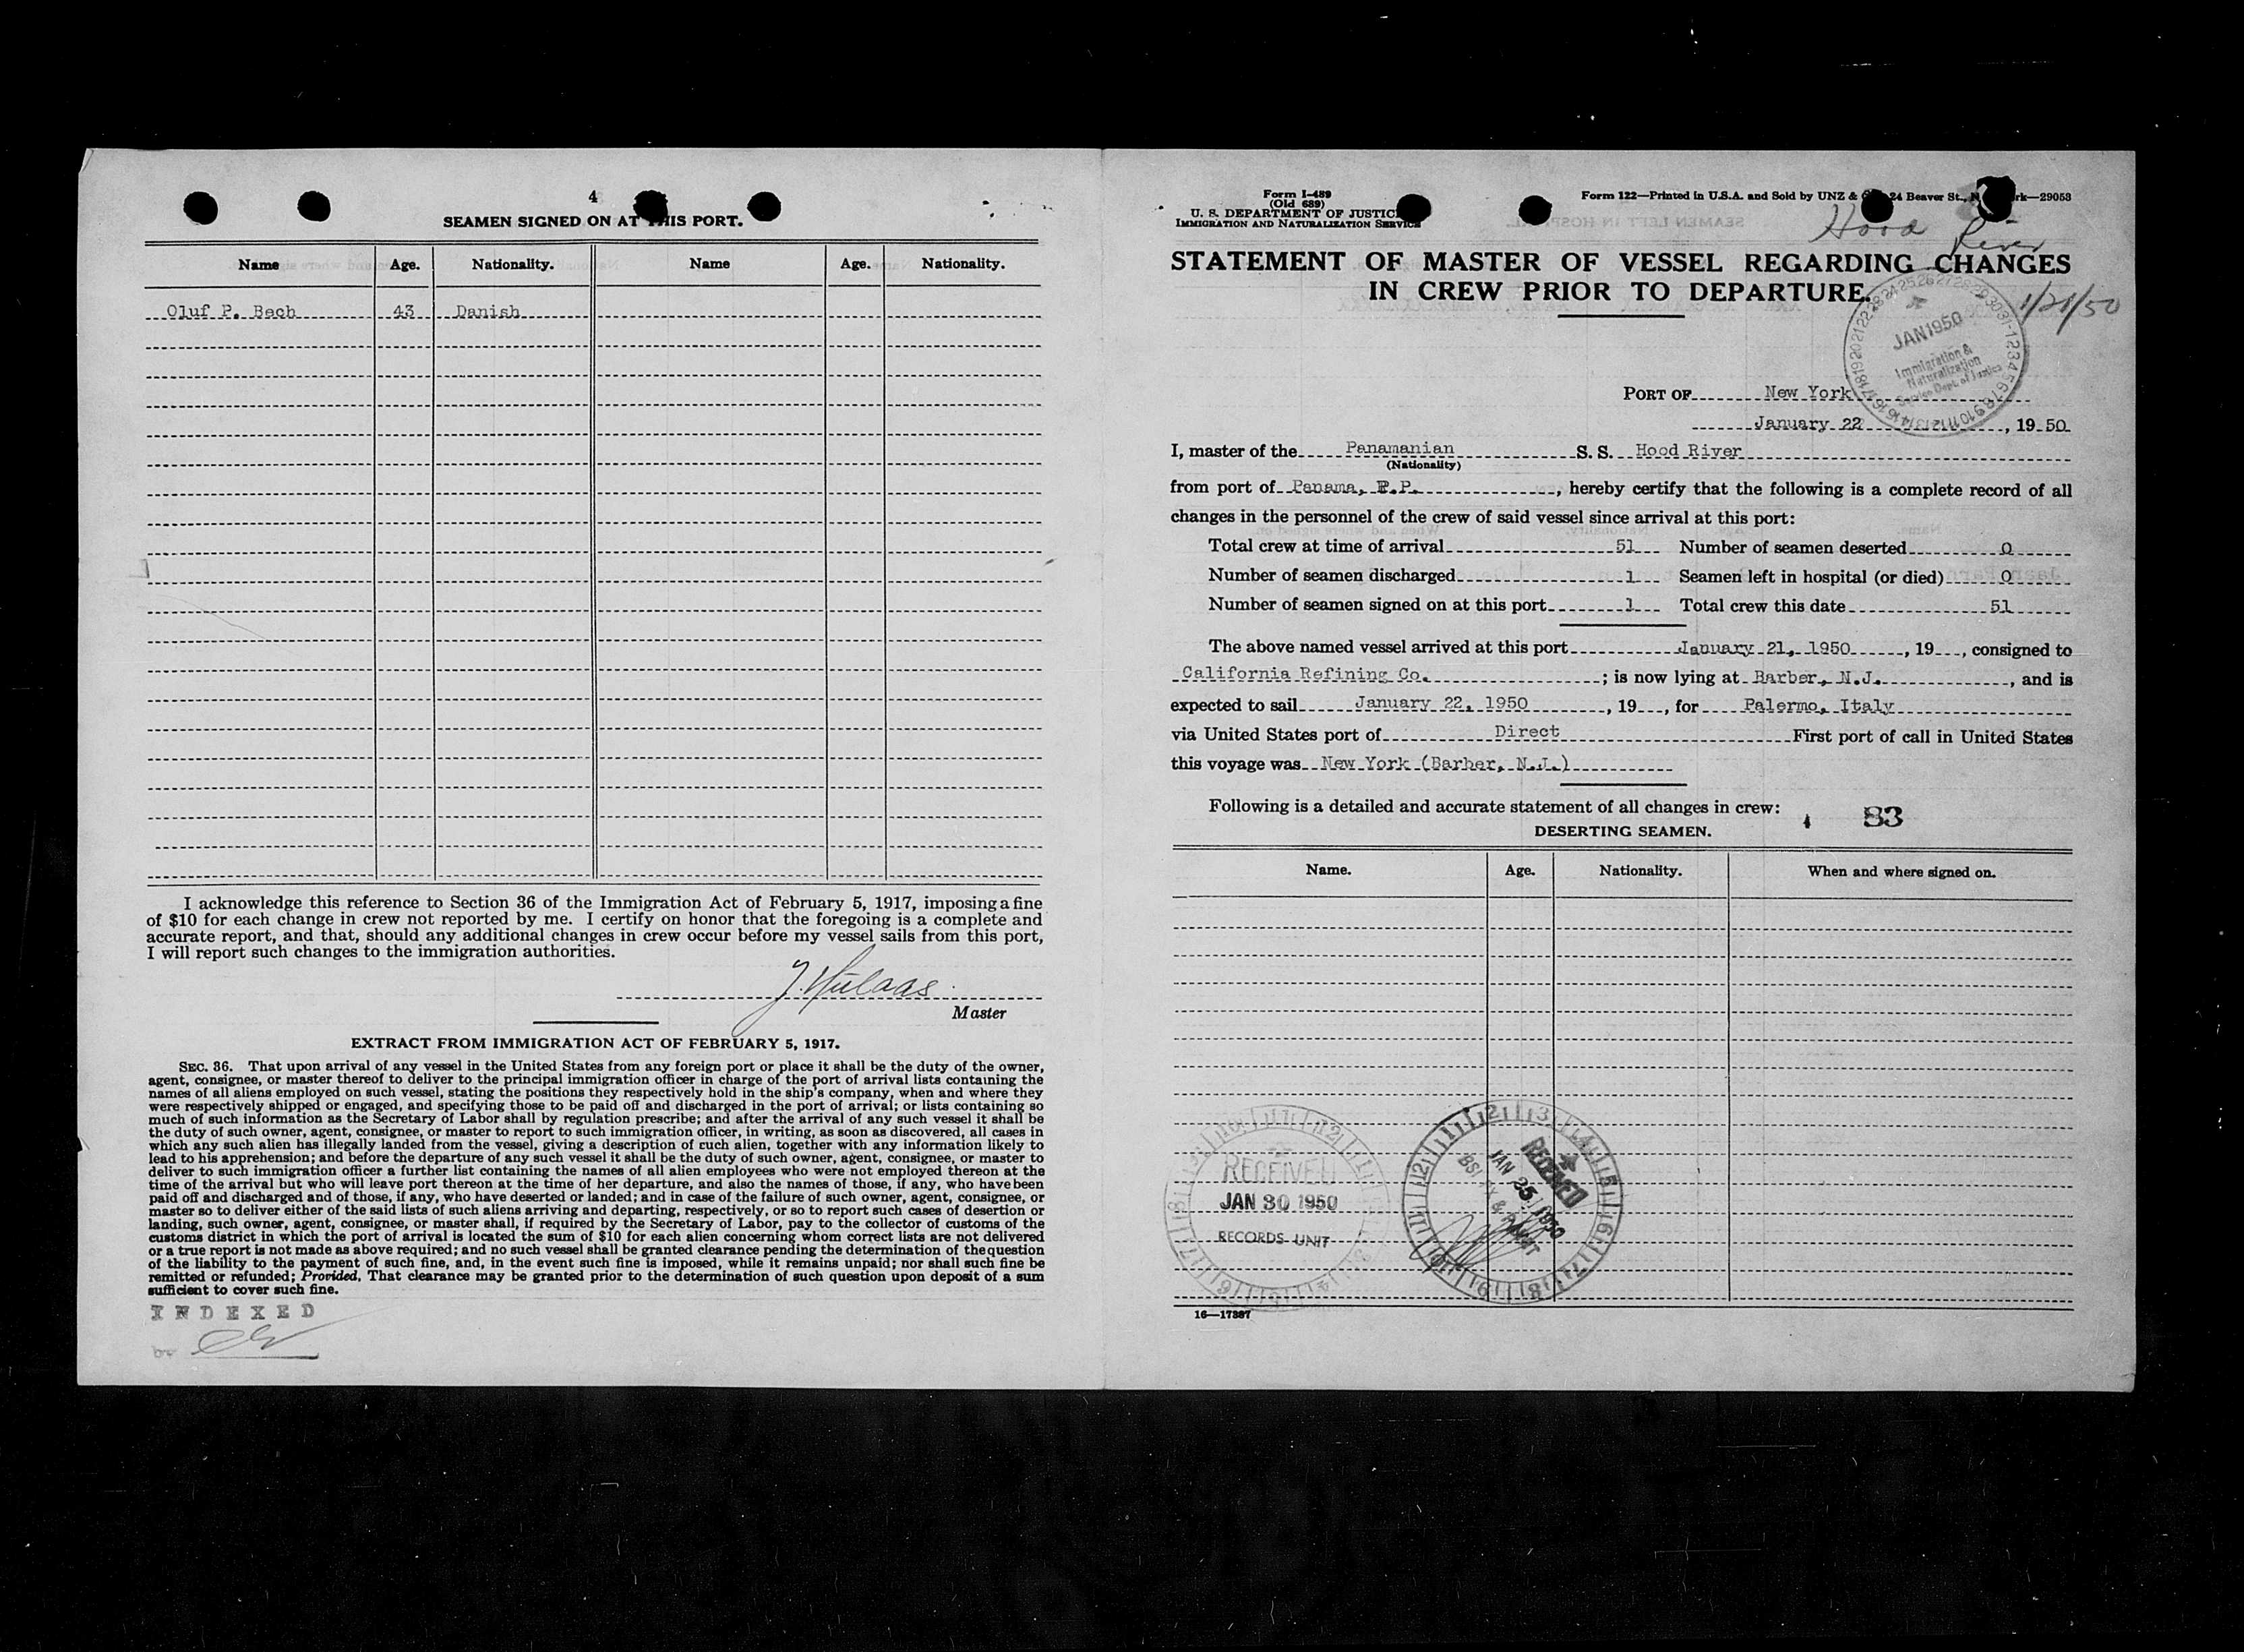 4
SEAMEN SIGNED ON AT THIS PORT.
Name Age. Nationality. Name Age. Nationality.
Oluf P. Bech 43 Danish
I acknowledge this reference to Section 36 of the Immigration Act of February 5, 1917, imposing a fine
of $10 for each change in crew not reported by me. I certify on honor that the foregoing is a complete and
accurate report, and that, should any additional changes in crew occur before my vessel sails from this port,
I will report such changes to the immigration authorities.
Master
EXTRACT FROM IMMIGRATION ACT OF FEBRUARY 5, 1917.
SEC. 36. That upon arrival of any vessel in the United States from any foreign port or place it shall be the duty of the owner,
agent, consignee, or master thereof to deliver to the principal immigration officer in charge of the port of arrival lists containing the
names of all aliens employed on such vessel, stating the positions they respectively hold in the ship's company, when and where they
were respectively shipped or engaged, and specifying those to be paid off and discharged in the port of arrival; or lists containing so
much of such information as the Secretary of Labor shall by regulation prescribe; and after the arrival of any such vessel it shall be
the duty of such owner, agent, consignee, or master to report to such immigration officer, in writing, as soon as discovered, all cases in
which any such alien has illegally landed from the vessel, giving a description of such alien, together with any information likely to
lead to his apprehension; and before the departure of any such vessel it shall be the duty of such owner, agent, consignee, or master to
deliver to such immigration officer a further list containing the names of all alien employees who were not employed thereon at the
time of the arrival but who will leave port thereon at the time of her departure, and also the names of those, if any, who have been
paid off and discharged and of those, if any, who have deserted or landed; and in case of the failure of such owner, agent, consignee, or
master so to deliver either of the said lists of such aliens arriving and departing, respectively, or so to report such cases of desertion or
landing, such owner, agent, consignee, or master shall, if required by the Secretary of Labor, pay to the collector of customs of the
customs district in which the port of arrival is located the sum of $10 for each alien concerning whom correct lists are not delivered
or a true report is not made as above required; and no such vessel shall be granted clearance pending the determination of the question
of the liability to the payment of such fine, and, in the event such fine is imposed, while it remains unpaid; nor shall such fine be
remitted or refunded; Provided, That clearance may be granted prior to the determination of such question upon deposit of a sum
sufficient to cover such fine.
INDEXED
Form I-489
(Old 689)
U. S. DEPARTMENT OF JUSTICE
IMMIGRATION AND NATURALIZATION SERVICE
Form 122—Printed in U.S.A. and Sold by UNZ & 24 Beaver St., N rk—29053
Hood River
1/21/50
STATEMENT OF MASTER OF VESSEL REGARDING CHANGES
IN CREW PRIOR TO DEPARTURE.
JAN 1950
Immigration &
Naturalization
Service Dept. of Justice
PORT OF New York
January 22, 19 50
I, master of the Panamanian S. S. Hood River
(Nationality)
from port of Panama, R.P., hereby certify that the following is a complete record of all
changes in the personnel of the crew of said vessel since arrival at this port:
Total crew at time of arrival 51 Number of seamen deserted 0
Number of seamen discharged 1 Seamen left in hospital (or died) 0
Number of seamen signed on at this port 1 Total crew this date 51
The above named vessel arrived at this port January 21, 1950, 19, consigned to
California Refining Co.; is now lying at Barber, N.J., and is
expected to sail January 22, 1950, 19, for Palermo, Italy
via United States port of Direct First port of call in United States
this voyage was New York (Barber, N.J.)
Following is a detailed and accurate statement of all changes in crew:
83
DESERTING SEAMEN.
Name. Age. Nationality. When and where signed on.
RECEIVED
JAN 30 1950
RECORDS UNIT
RECEIVED
JAN 25 1950
16—17387